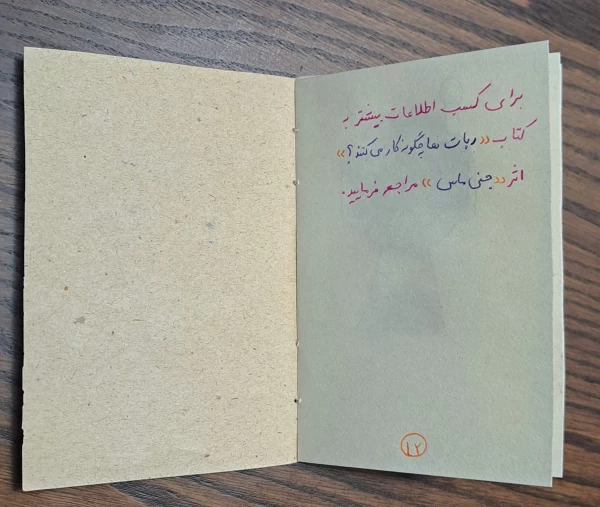 برای کسب اطلاعات بیشتر به
کتاب «ربات ها چگونه کار می کنند؟»
اثر «جنی ماس» مراجعه فرمایید.
۱۲